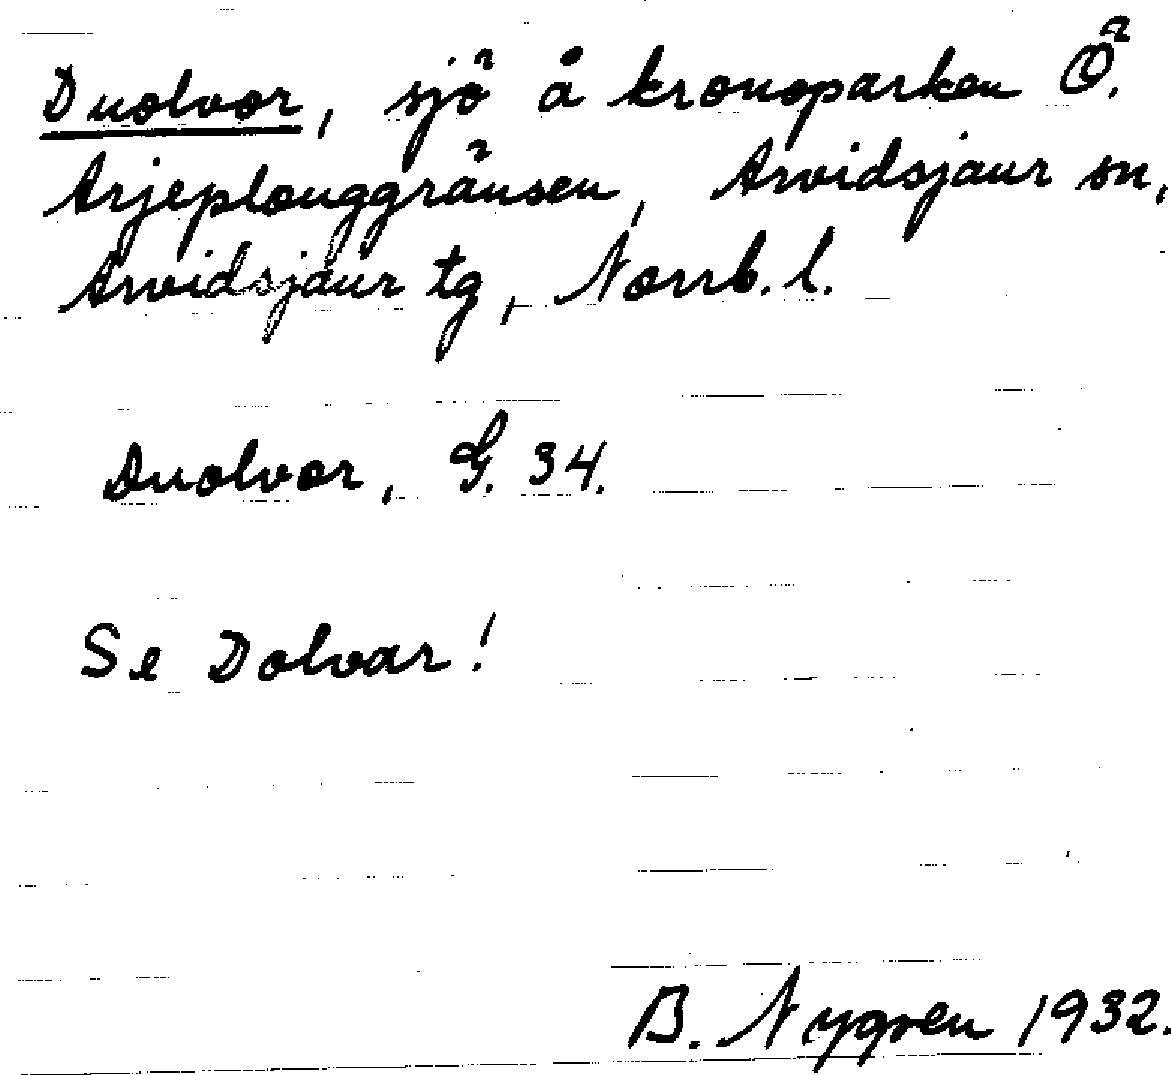 Duolvor, sjö å kronoparken Ö.
Arjeplouggränsen, Arvidsjaur sn,
Arvidsjaur tg, Norrb. l.
Duolvor, G. 34.
Se Dolvar!
B. Nygren 1932.